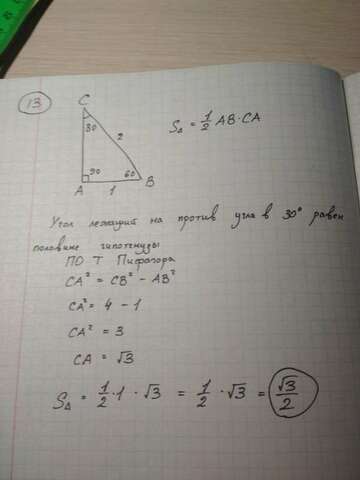 13
C
30
2
S△ = 1/2 AB · CA
90
60
A
1
B
Угол лежащий на против угла в 30° равен
половине гипотенузы
ПО Т Пифагора
CA² = CB² - AB²
CA² = 4 - 1
CA² = 3
CA = √3
S△ = 1/2 · 1 · √3 = 1/2 · √3 = √3/2